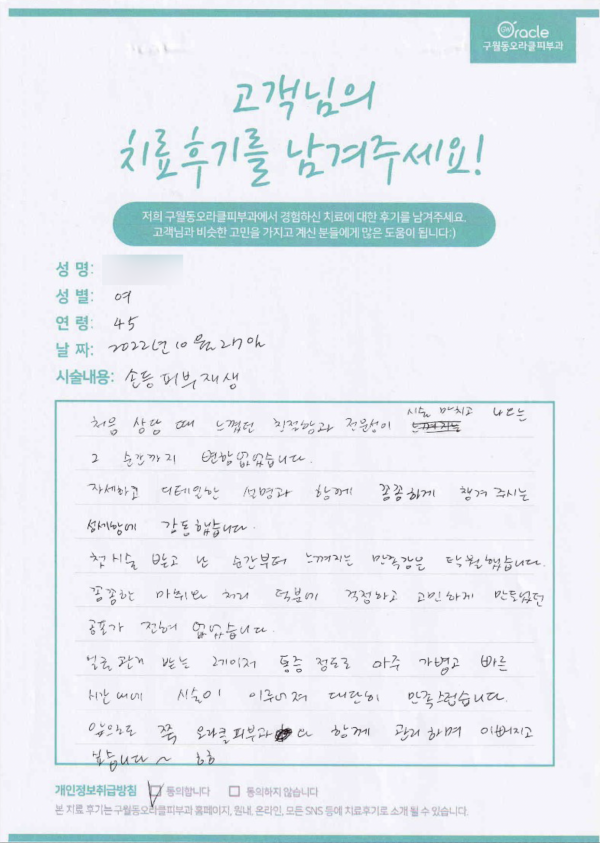 Oracle
구월동오라클피부과
고객님의
치료후기를 남겨주세요!
저희 구월동오라클피부과에서 경험하신 치료에 대한 후기를 남겨주세요.
고객님과 비슷한 고민을 가지고 계신 분들에게 많은 도움이 됩니다:)
성 명:
성 별: 여
연 령: 45
날 짜: 2022년 10월 27일
시술내용: 손등 피부재생
처음 상담 때 느꼈던 친절함과 전문성이 시술 마치고 나오는
그 순간까지 변함없었습니다.
자세하고 디테일한 설명과 함께 꼼꼼하게 챙겨 주시는
섬세함에 감동했습니다.
첫 시술 받고 난 순간부터 느껴지는 만족감은 탁월했습니다.
꼼꼼한 마취와 처리 덕분에 걱정하고 고민하게 만들었던
공포가 전혀 없었습니다.
얼굴관리 받는 레이저 통증 정도로 아주 가볍고 빠른
시간내에 시술이 이루어져 대단히 만족스럽습니다.
앞으로도 쭉 오라클피부과와 함께 관리하며 이뻐지고
싶습니다~ ㅎㅎ
개인정보취급방침 동의합니다 동의하지 않습니다
본 치료 후기는 구월동오라클피부과 홈페이지, 원내, 온라인, 모든 SNS 등에 치료후기로 소개 될 수 있습니다.